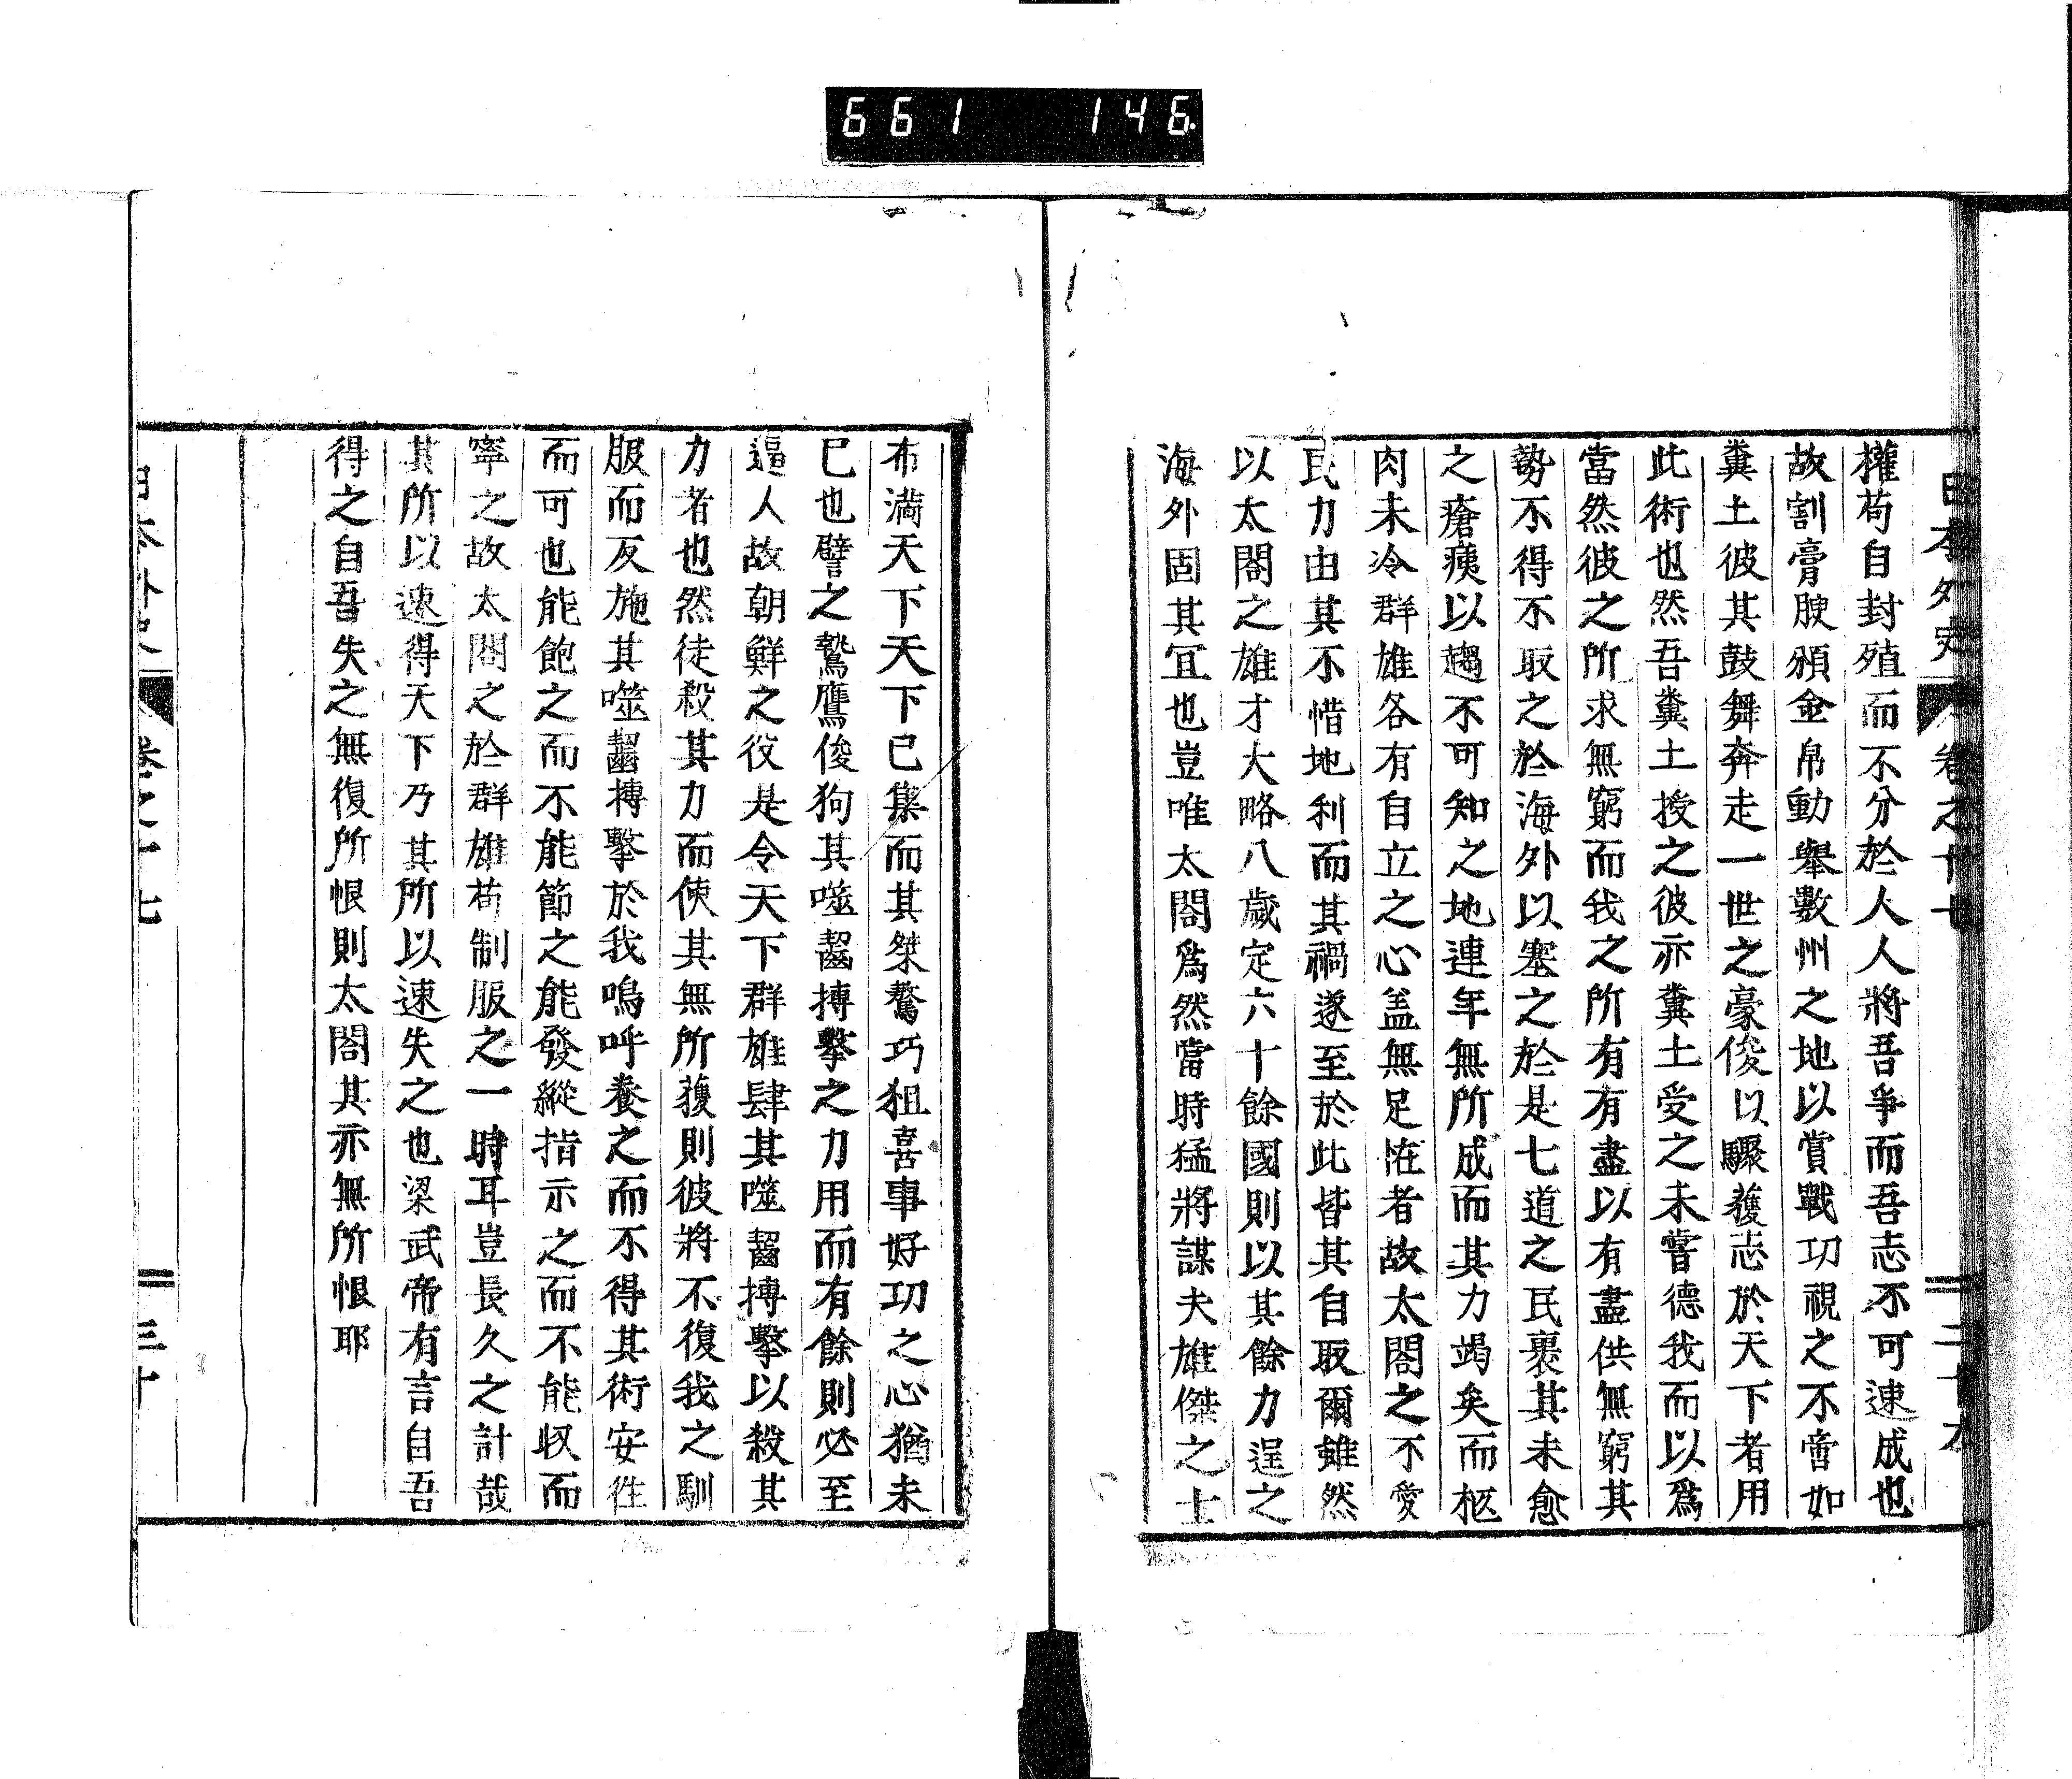 661 146
日本外史 卷之十七 二十九
權苟自封殖而不分於人人將吾爭而吾志不可速成也
故割膏腴頒金帛動舉數州之地以賞戰功視之不啻如
糞土彼其鼓舞奔走一世之豪俊以驟獲志於天下者用
此術也然吾糞土授之彼亦糞土受之未嘗德我而以爲
當然彼之所求無窮而我之所有有盡以有盡供無窮其
勢不得不取之於海外以塞之於是七道之民裹其未愈
之瘡痍以趨不可知之地連年無所成而其力竭矣而柩
肉未冷群雄各有自立之心盖無足恠者故太閤之不愛
民力由其不惜地利而其禍遂至於此皆其自取爾雖然
以太閤之雄才大略八歲定六十餘國則以其餘力逞之
海外固其冝也豈唯太閤爲然當時猛將謀夫雄傑之士
布滿天下天下已集而其桀驁巧狙喜事好功之心猶未
已也譬之鷙鷹俊狗其噬齧搏擊之力用而有餘則必至
逼人故朝鮮之役是令天下群雄肆其噬齧搏擊以殺其
力者也然徒殺其力而使其無所獲則彼將不復我之馴
服而反施其噬齧搏擊於我嗚呼養之而不得其術安徃
而可也能飽之而不能節之能發縱指示之而不能収而
寧之故太閤之於群雄苟制服之一時耳豈長久之計哉
其所以速得天下乃其所以速失之也梁武帝有言自吾
得之自吾失之無復所恨則太閤其亦無所恨耶
日本外史 卷之十七 三十